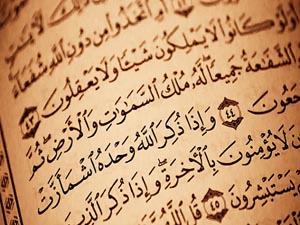 أَمِ ٱتَّخَذُوا۟ مِن دُونِ ٱللَّهِ شُفَعَآءَ
أَوَلَوْ كَانُوا۟ لَا يَمْلِكُونَ شَيْـًٔا وَلَا يَعْقِلُونَ ٤٣
ٱلشَّفَـٰعَةُ جَمِيعًا ۖ لَّهُۥ مُلْكُ ٱلسَّمَـٰوَٰتِ وَٱلْأَرْضِ ۖ ثُمَّ
جَعُونَ ٤٤ وَإِذَا ذُكِرَ ٱللَّهُ وَحْدَهُ ٱشْمَأَزَّتْ
نَ لَا يُؤْمِنُونَ بِٱلْـَٔاخِرَةِ ۖ وَإِذَا ذُكِرَ ٱلَّذِ
يَسْتَبْشِرُونَ ٤٥ قُلِ ٱللَّهُ